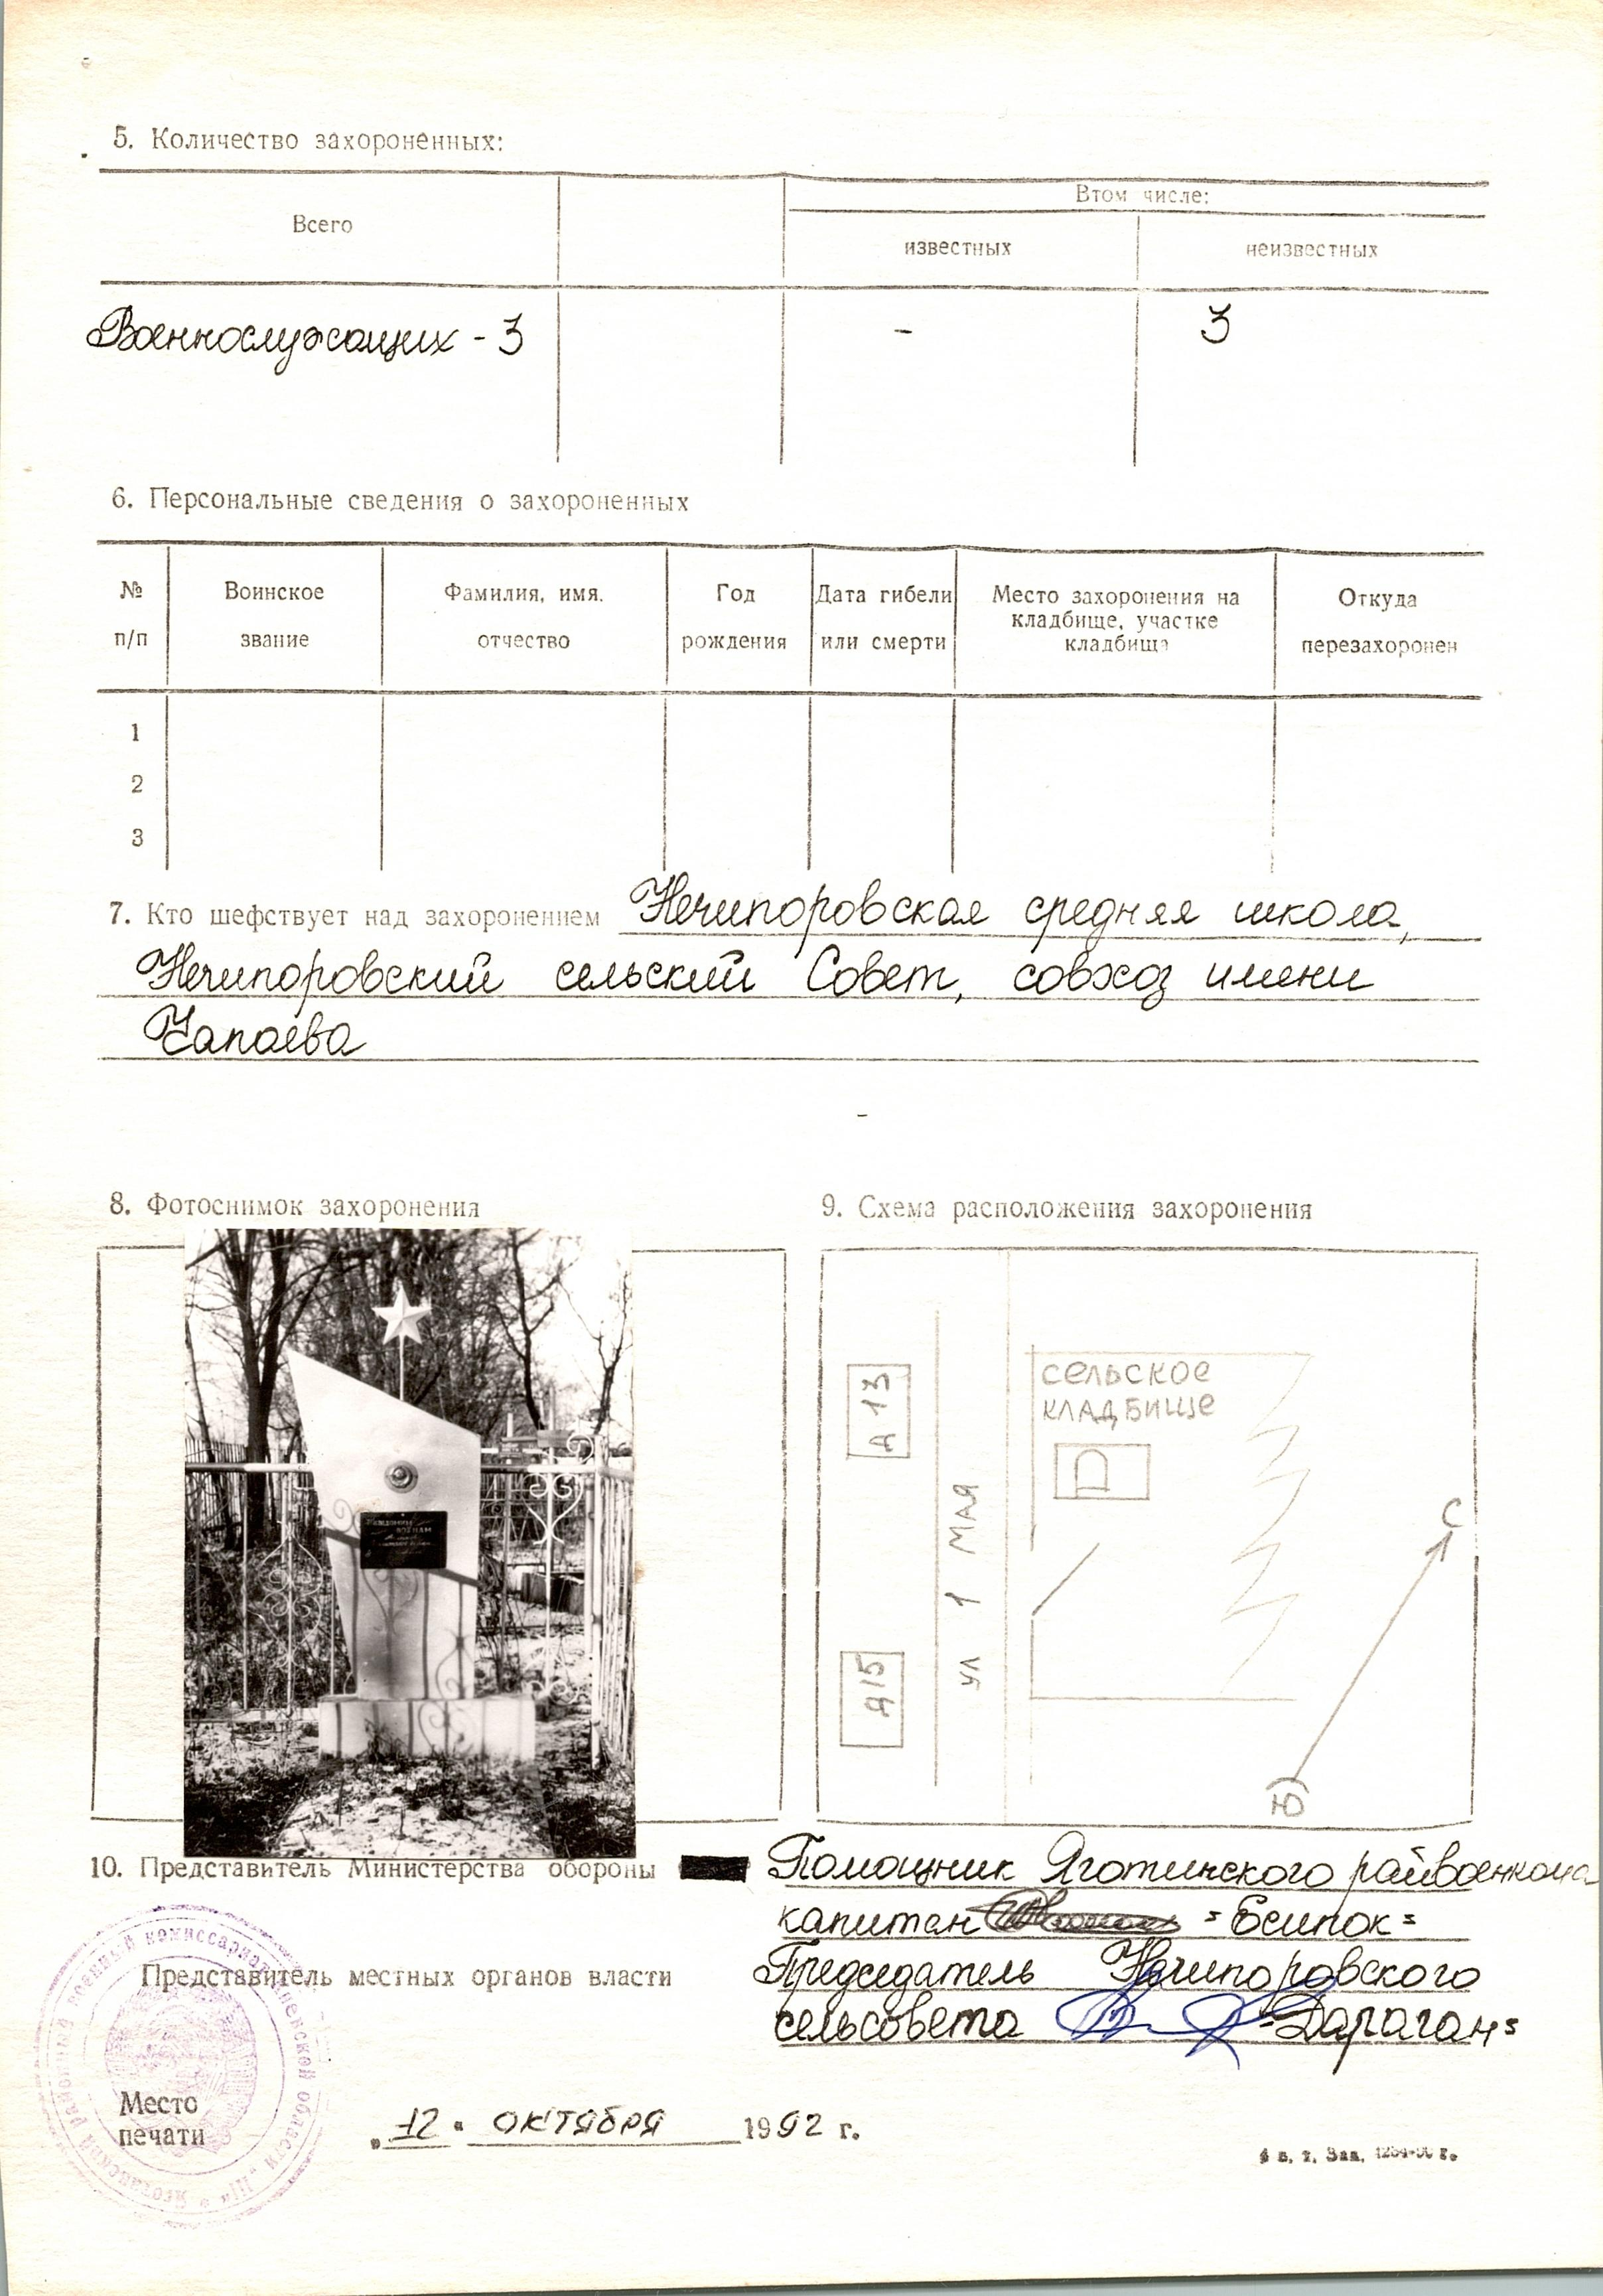 5. Количество захороненных:
Всего
Втом числе:
известных
неизвестных
Военнослужащих - 3
-
3
6. Персональные сведения о захороненных
№ п/п
Воинское звание
Фамилия, имя. отчество
Год рождения
Дата гибели или смерти
Место захоронения на кладбище, участке кладбища
Откуда перезахоронен
1
2
3
7. Кто шефствует над захоронением Нечипоровская средняя школа,
Нечипоровский сельский Совет, совхоз имени
Чапаева
8. Фотоснимок захоронения
ВОИНАМ
9. Схема расположения захоронения
Д 13
Д 15
ул 1 МАЯ
СЕЛЬСКОЕ
КЛАДБИЩЕ
С
Ю
10. Представитель Министерства обороны
Помощник Яготинского райвоенкома
капитан =Есипок=
Представитель местных органов власти
Председатель Нечипоровского
сельсовета =Дараган=
Место
печати
„12" ОКТЯБРЯ 1992 г.